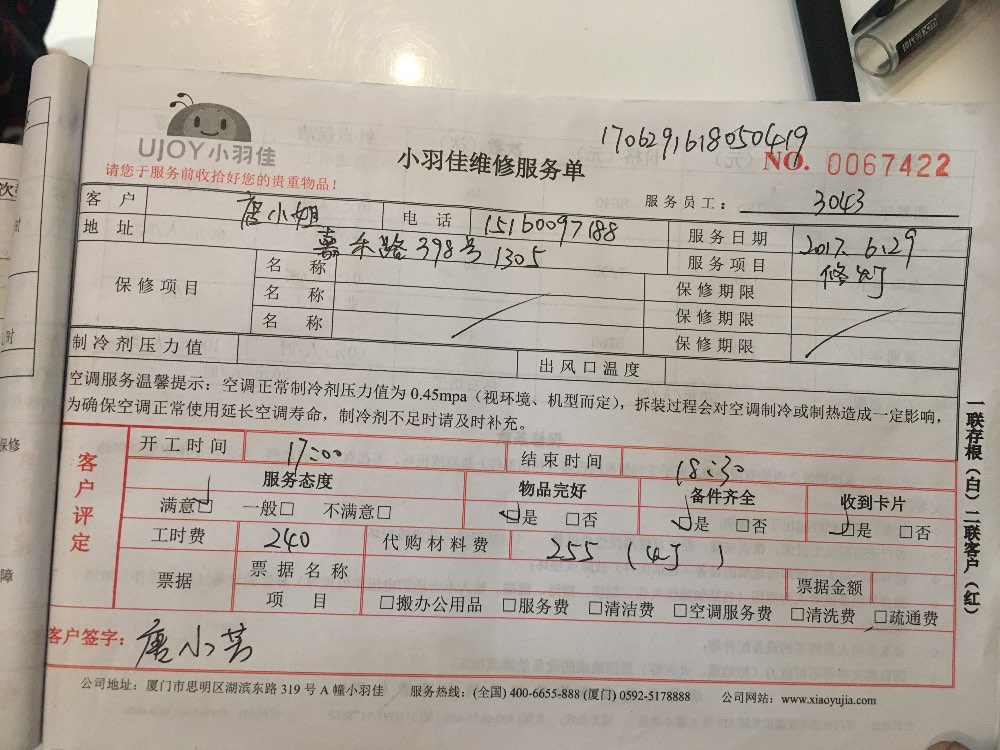 现代美.com
UJOY小羽佳
请您于服务前收拾好您的贵重物品！
小羽佳维修服务单
1706291618050419
NO. 0067422
服务员工： 3043
客户 唐小姐 电话 15160097188 服务日期 2017.6.29
地址 嘉禾路398号1305 服务项目 修灯
保修项目 名称 保修期限
名称 保修期限
名称 保修期限
制冷剂压力值 出风口温度
空调服务温馨提示：空调正常制冷剂压力值为 0.45mpa（视环境、机型而定），拆装过程会对空调制冷或制热造成一定影响，
为确保空调正常使用延长空调寿命，制冷剂不足时请及时补充。
客户评定
开工时间 17:00 结束时间 18:30
服务态度 物品完好 备件齐全 收到卡片
满意□ 一般□ 不满意□ □是 □否 □是 □否 □是 □否
工时费 240 代购材料费 255（灯）
票据 票据名称 票据金额
项目 □搬办公用品 □服务费 □清洁费 □空调服务费 □清洗费 □疏通费
客户签字：唐小芳
公司地址：厦门市思明区湖滨东路 319 号 A 幢小羽佳 服务热线：(全国) 400-6655-888 (厦门) 0592-5178888 公司网站：www.xiaoyujia.com
一联存根（白）二联客户（红）